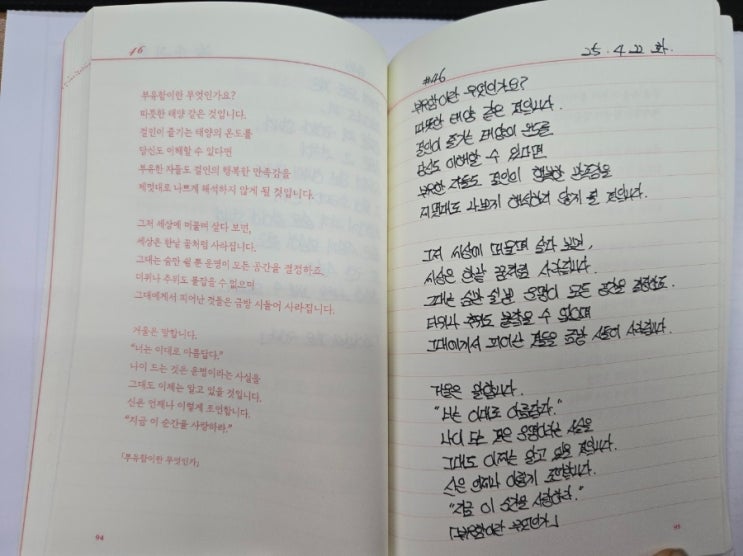 46
부유함이란 무엇인가요?
따뜻한 태양 같은 것입니다.
걸인이 즐기는 태양의 온도를
당신도 이해할 수 있다면
부유한 자들도 걸인의 행복한 만족감을
제멋대로 나쁘게 해석하지 않게 될 것입니다.
그저 세상에 머물며 살다 보면,
세상은 한낱 꿈처럼 사라집니다.
그대는 숨만 쉴 뿐 운명이 모든 공간을 결정하죠.
더위나 추위도 붙잡을 수 없으며
그대에게서 피어난 것들은 금방 시들어 사라집니다.
거울은 말합니다.
“너는 이대로 아름답다.”
나이 드는 것은 운명이라는 사실을
그대도 이제는 알고 있을 것입니다.
신은 언제나 이렇게 조언합니다.
“지금 이 순간을 사랑하라.”
「부유함이란 무엇인가」
94
25. 4. 22 화.
#46
부유함이란 무엇인가요?
따뜻한 태양 같은 것입니다.
걸인이 즐기는 태양의 온도를
당신도 이해할 수 있다면
부유한 자들도 걸인의 행복한 만족감을
제멋대로 나쁘게 해석하지 않게 될 것입니다.
그저 세상에 머물며 살다 보면,
세상은 한낱 꿈처럼 사라집니다.
그대는 숨만 쉴 뿐 운명이 모든 공간을 결정하죠.
더위나 추위도 붙잡을 수 없으며
그대에게서 피어난 것들은 금방 시들어 사라집니다.
거울은 말합니다.
"너는 이대로 아름답다."
나이 드는 것은 운명이라는 사실을
그대도 이제는 알고 있을 것입니다.
신은 언제나 이렇게 조언합니다.
"지금 이 순간을 사랑하라."
「부유함이란 무엇인가」
95